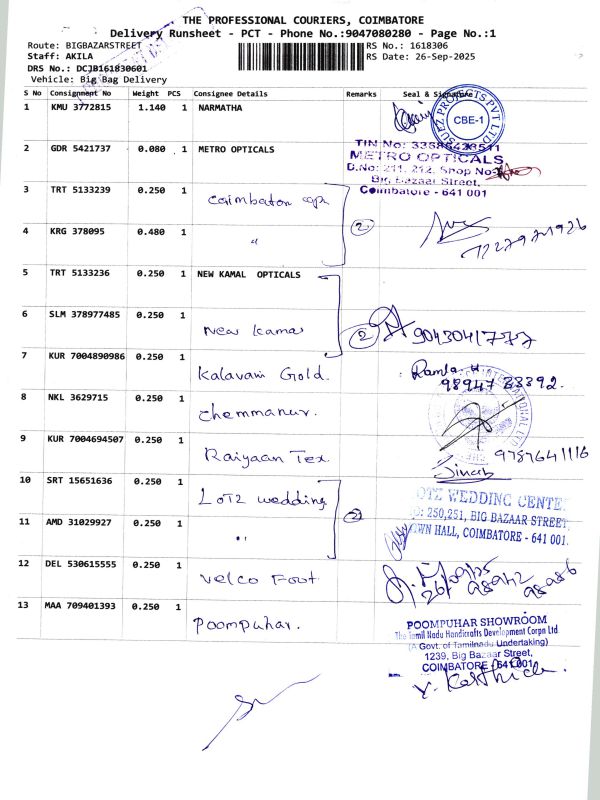 THE PROFESSIONAL COURIERS, COIMBATORE
Delivery Runsheet - PCT - Phone No.:9047080280 - Page No.:1
Route: BIGBAZARSTREET
RS No.: 1618306
Staff: AKILA
RS Date: 26-Sep-2025
DRS No.: DCJB161830601
Vehicle: Big Bag Delivery
S No Consignment No Weight PCS Consignee Details Remarks Seal & Signature
1 KMU 3772815 1.140 1 NARMATHA
SUEZ PROJECTS PVT LTD
CBE-1
2 GDR 5421737 0.080 1 METRO OPTICALS
METRO OPTICALS
D.No: 211, 212, Shop No
Big Bazaar Street,
Coimbatore - 641 001
3 TRT 5133239 0.250 1 Coimbaton opti
4 KRG 378095 0.480 1 "
2
5 TRT 5133236 0.250 1 NEW KAMAL OPTICALS
6 SLM 378977485 0.250 1 New Kamal
2 9043041777
7 KUR 7004890986 0.250 1 Kalavani Gold.
Ramla H
98947 33392.
8 NKL 3629715 0.250 1 Chemmanur.
9 KUR 7004694507 0.250 1 Raiyaan Tex
9787641116
10 SRT 15651636 0.250 1 LOTZ wedding
2
OTZ WEDDING CENTE
: 250,251, BIG BAZAAR STREET,
OWN HALL, COIMBATORE - 641 001.
11 AMD 31029927 0.250 1 "
12 DEL 530615555 0.250 1 Velco Foot
13 MAA 709401393 0.250 1 Poompuhar.
POOMPUHAR SHOWROOM
The Tamil Nadu Handicrafts Development Corpn Ltd
(A Govt. of Tamilnadu Undertaking)
1239, Big Bazaar Street,
COIMBATORE - 641 001
V. Karthick